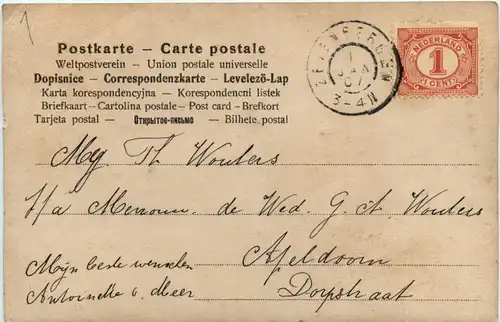 1
Postkarte – Carte postale
Weltpostverein – Union postale universelle
Dopisnice – Correspondenzkarte – Levelezö-Lap
Karta korespondencyjna – Korespondencni listek
Briefkaart – Cartolina postale – Post card – Brefkort
Tarjeta postal – Открытое письмо – Bilhete postal
ZEVENBERGEN
1 JAN 07
3-4N
NEDERLAND
1
CENT
Mej Th Wouters
p/a Mevrouw de Wed. G. A Wouters
Apeldoorn
Dorpstraat
Mijn beste wenschen
Antoinette v. Meer